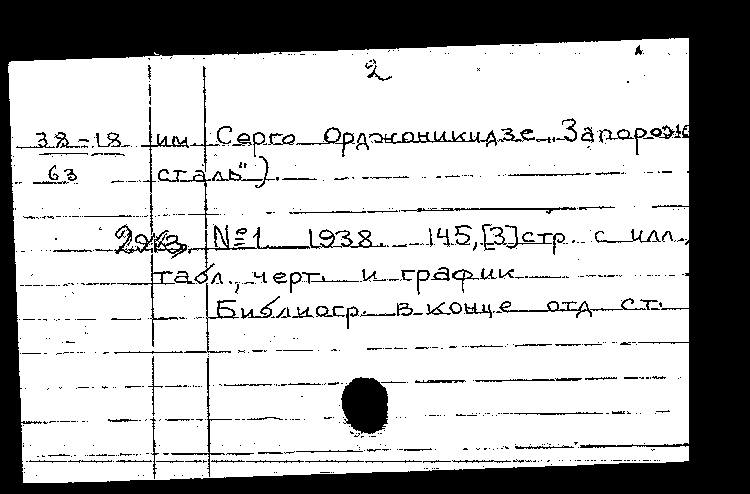 2
38-18 им. Серго Орджоникидзе „Запорож
63 сталь").
2экз. №1 1938. 145,[3]стр. с илл.,
табл., черт. и график
Библиогр. в конце отд ст.